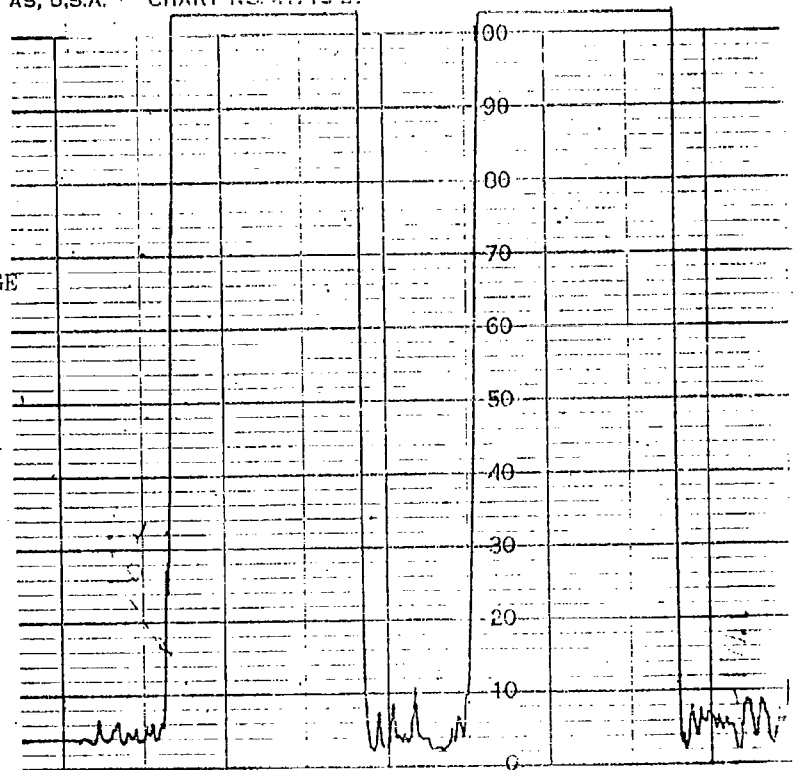 AS, U.S.A. CHART NO.
00
90
80
70
GE
60
50
40
30
20
10
0